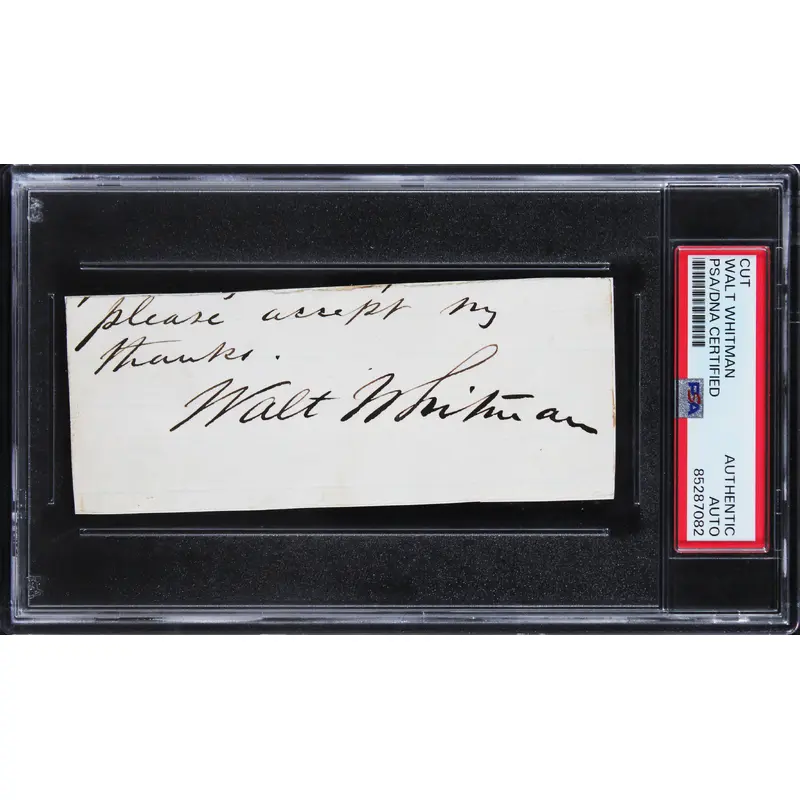 please accept my
thanks.
Walt Whitman
CUT
WALT WHITMAN
PSA/DNA CERTIFIED
AUTHENTIC
AUTO
85287082
PSA